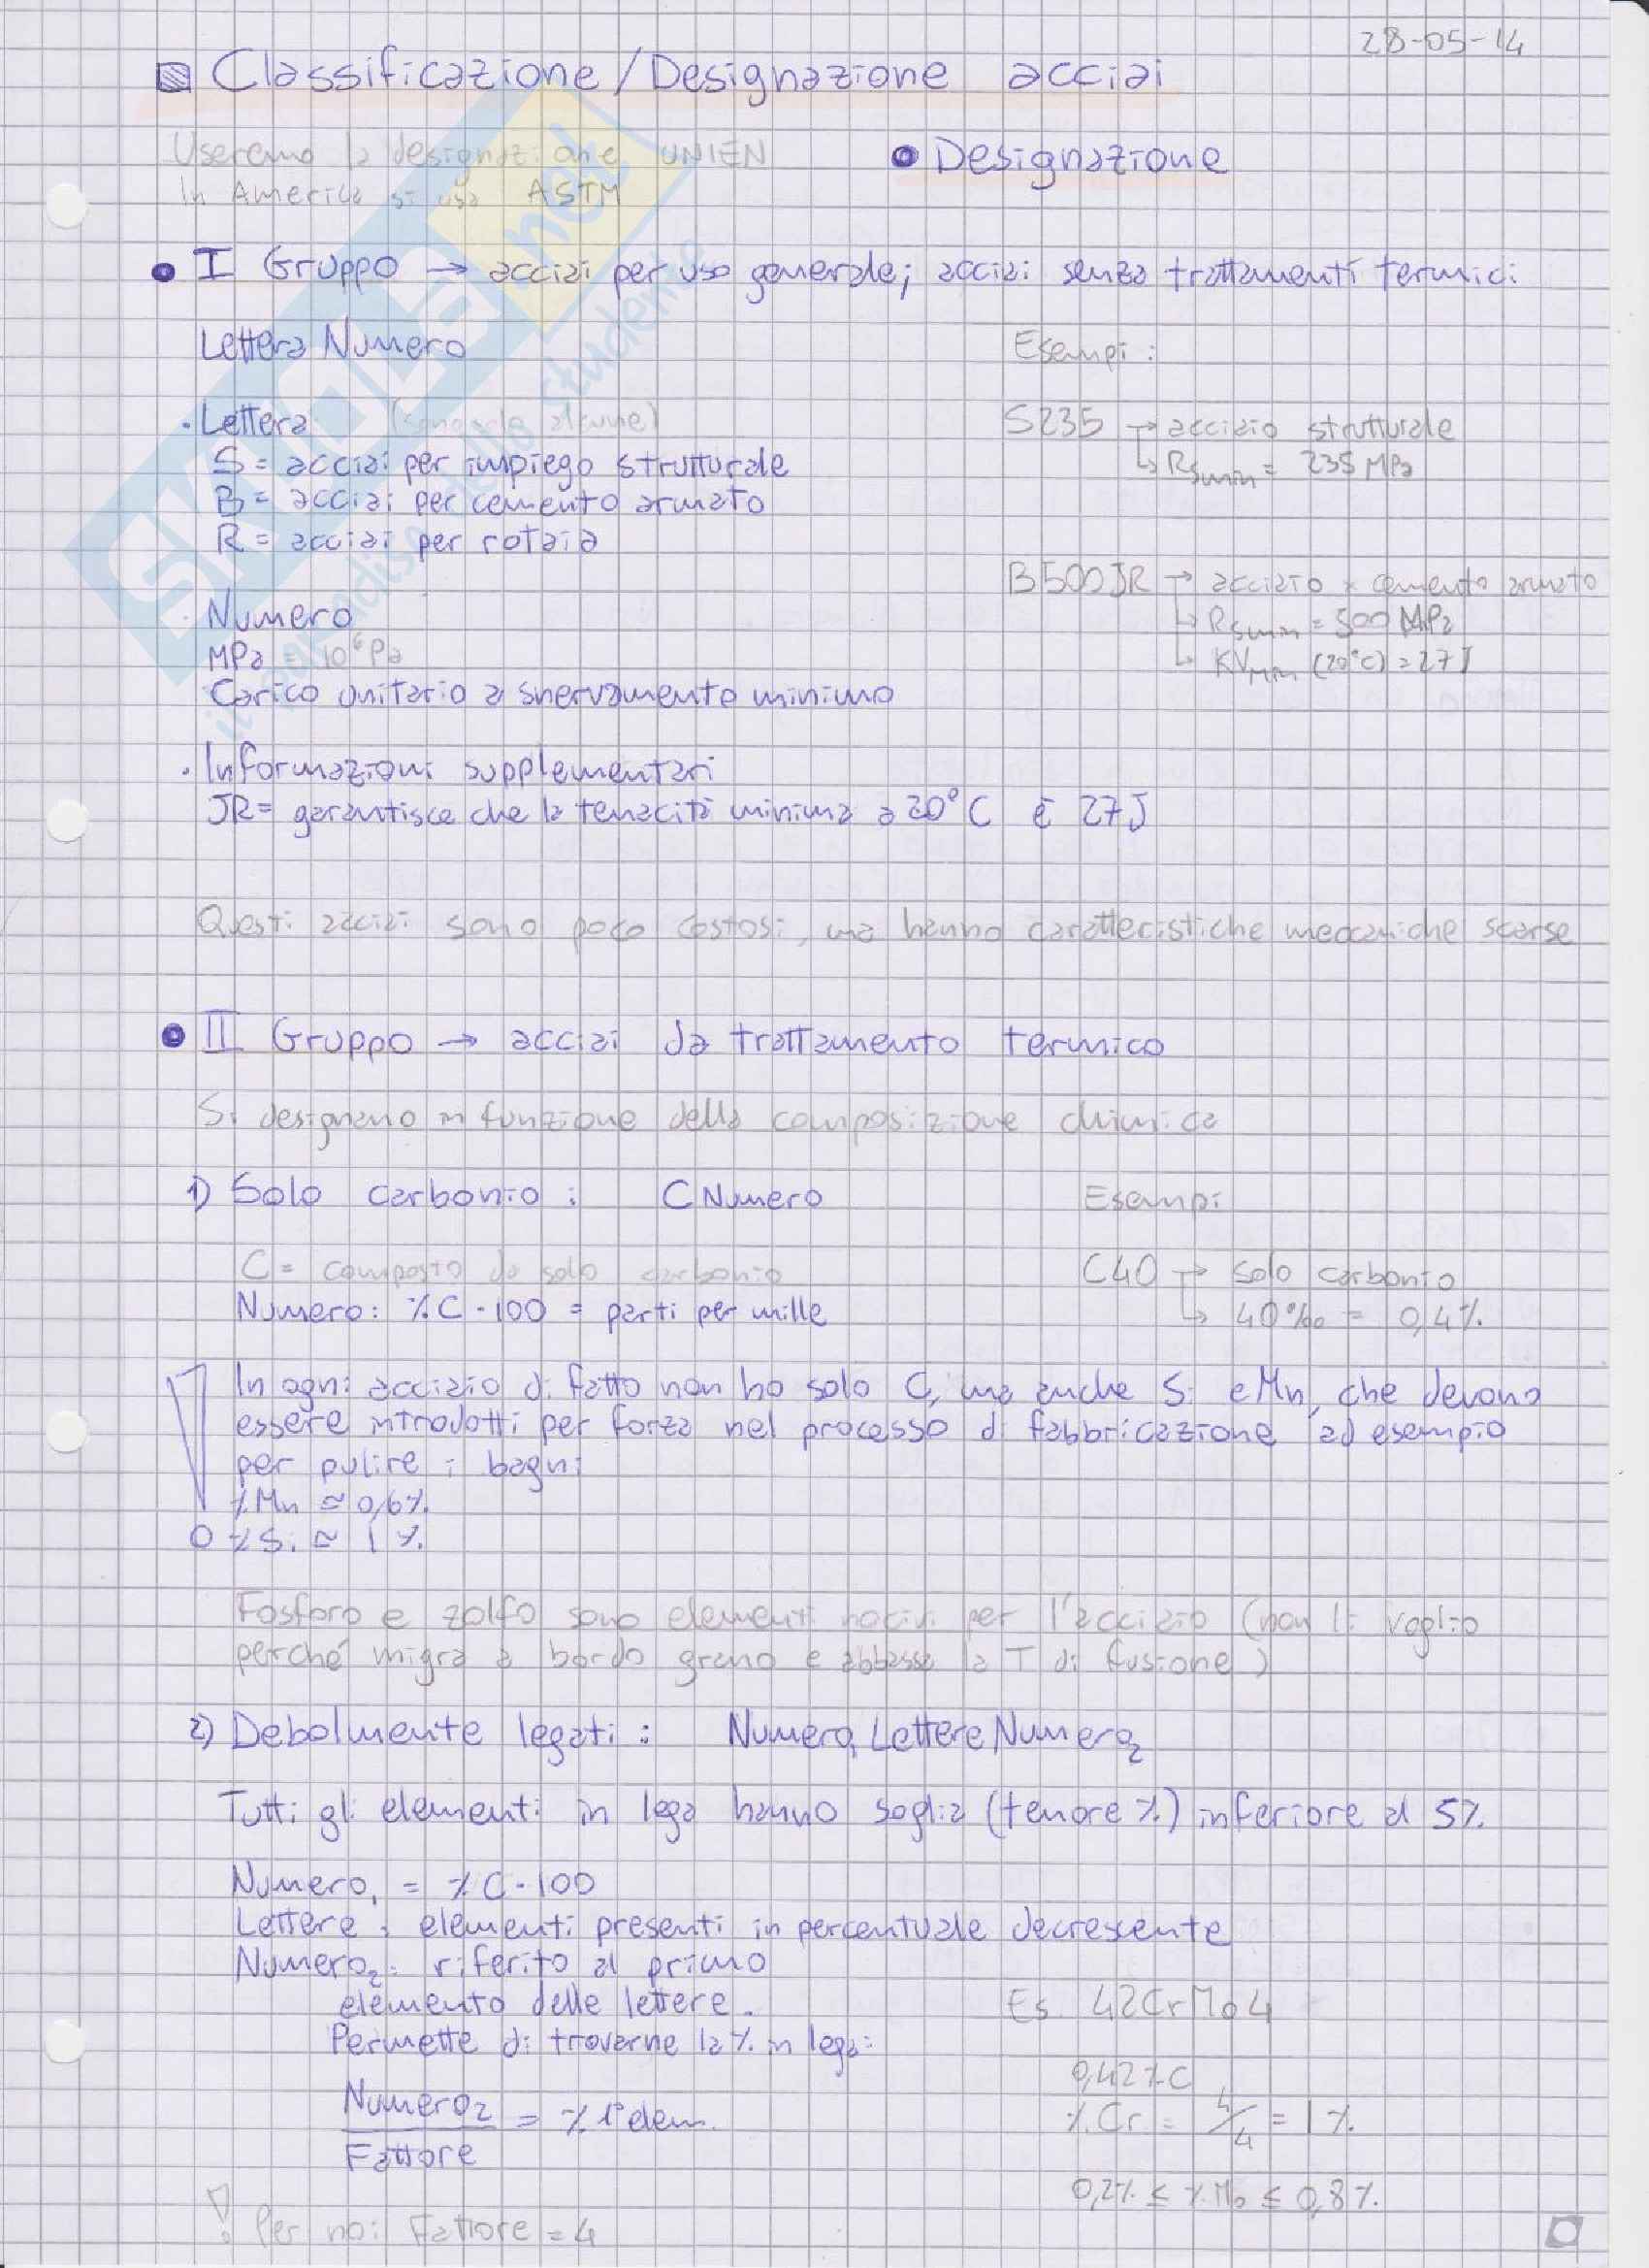 28-05-14
Classificazione/Designazione acciai
Useremo la designazione UNIEN
In America si usa ASTM
Designazione
I Gruppo → acciai per uso generale; acciai senza trattamenti termici
Lettera Numero
Esempi:
· Lettera (sono solo alcune)
S = acciai per impiego strutturale
B = acciai per cemento armato
R = acciai per rotaia
S235 → acciaio strutturale
↳ Rsmin = 235 MPa
B500JR → acciaio x cemento armato
↳ Rsmin = 500 MPa
↳ KVmin (20°C) = 27J
· Numero
MPa = 10⁶Pa
Carico unitario a snervamento minimo
· Informazioni supplementari
JR = garantisce che la tenacità minima a 20°C è 27J
Questi acciai sono poco costosi, ma hanno caratteristiche meccaniche scarse
II Gruppo → acciai da trattamento termico
Si designano in funzione della composizione chimica
1) Solo carbonio: CNumero
Esempi
C = composto da solo carbonio
Numero: %C·100 = parti per mille
C40 → solo carbonio
↳ 40‰ = 0,4%
In ogni acciaio di fatto non ho solo C, ma anche Si e Mn, che devono
essere introdotti per forza nel processo di fabbricazione ad esempio
per pulire i bagni
%Mn ≃ 0,6%
%Si ≃ 1%
Fosforo e zolfo sono elementi nocivi per l'acciaio (non li voglio
perché migra a bordo grano e abbassa la T di fusione)
2) Debolmente legati: Numero₁ Lettere Numero₂
Tutti gli elementi in lega hanno soglia (tenore %) inferiore al 5%
Numero₁ = %C·100
Lettere: elementi presenti in percentuale decrescente
Numero₂: riferito al primo
elemento delle lettere.
Permette di trovarne la % in lega:
Numero₂ / Fattore = % 1° elem.
! Per noi Fattore = 4
Es. 42CrMo4
0,42%C
%Cr = 4/4 = 1%
0,2% ≤ %Mo ≤ 0,8%
SKUOLA.net
il paradiso dello studente